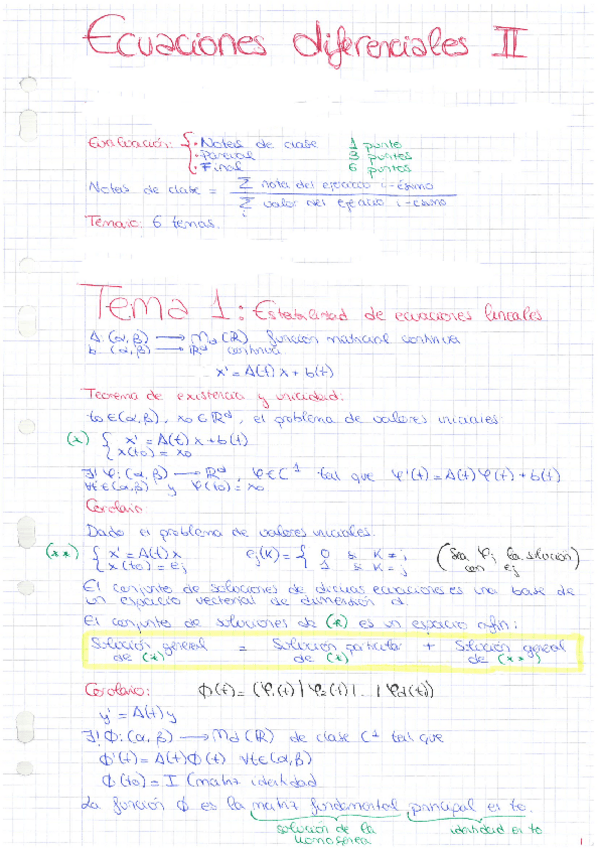 Ecuaciones diferenciales II
Evaluación: { · Notas de clase 1 punto
· Parcial 3 puntos
· Final 6 puntos
Notas de clase = Σ nota del ejercicio i-ésimo / Σ valor del ejercicio i-ésimo
i
Temario: 6 temas.
Tema 1: Estabilidad de ecuaciones lineales
A: (α, β) → Md (ℝ) función matricial continua
b: (α, β) → ℝᵈ continua
x' = A(t) x + b(t)
Teorema de existencia y unicidad:
t₀ ∈ (α, β), x₀ ∈ ℝᵈ, el problema de valores iniciales
(*) { x' = A(t) x + b(t)
x(t₀) = x₀
∃! φ: (α, β) → ℝᵈ, φ ∈ C¹ tal que φ'(t) = A(t) φ(t) + b(t)
∀t ∈ (α, β) y φ(t₀) = x₀
Corolario:
Dado el problema de valores iniciales:
(**) { x' = A(t) x eⱼ(k) = { 0 si k ≠ j (Sea φⱼ la solución
x(t₀) = eⱼ 1 si k = j con eⱼ)
El conjunto de soluciones de dichas ecuaciones es una base de
un espacio vectorial de dimensión d.
El conjunto de soluciones de (*) es un espacio afín:
Solución general = Solución particular + Solución general
de (*) de (*) de (**)
Corolario: ϕ(t) = (φ₁(t) | φ₂(t) | ... | φd(t))
y' = A(t) y
∃! ϕ: (α, β) → Md (ℝ) de clase C¹ tal que
ϕ'(t) = A(t) ϕ(t) ∀t ∈ (α, β)
ϕ(t₀) = I (matriz identidad
La función ϕ es la matriz fundamental principal en t₀.
solución de la identidad en t₀
homogénea
1